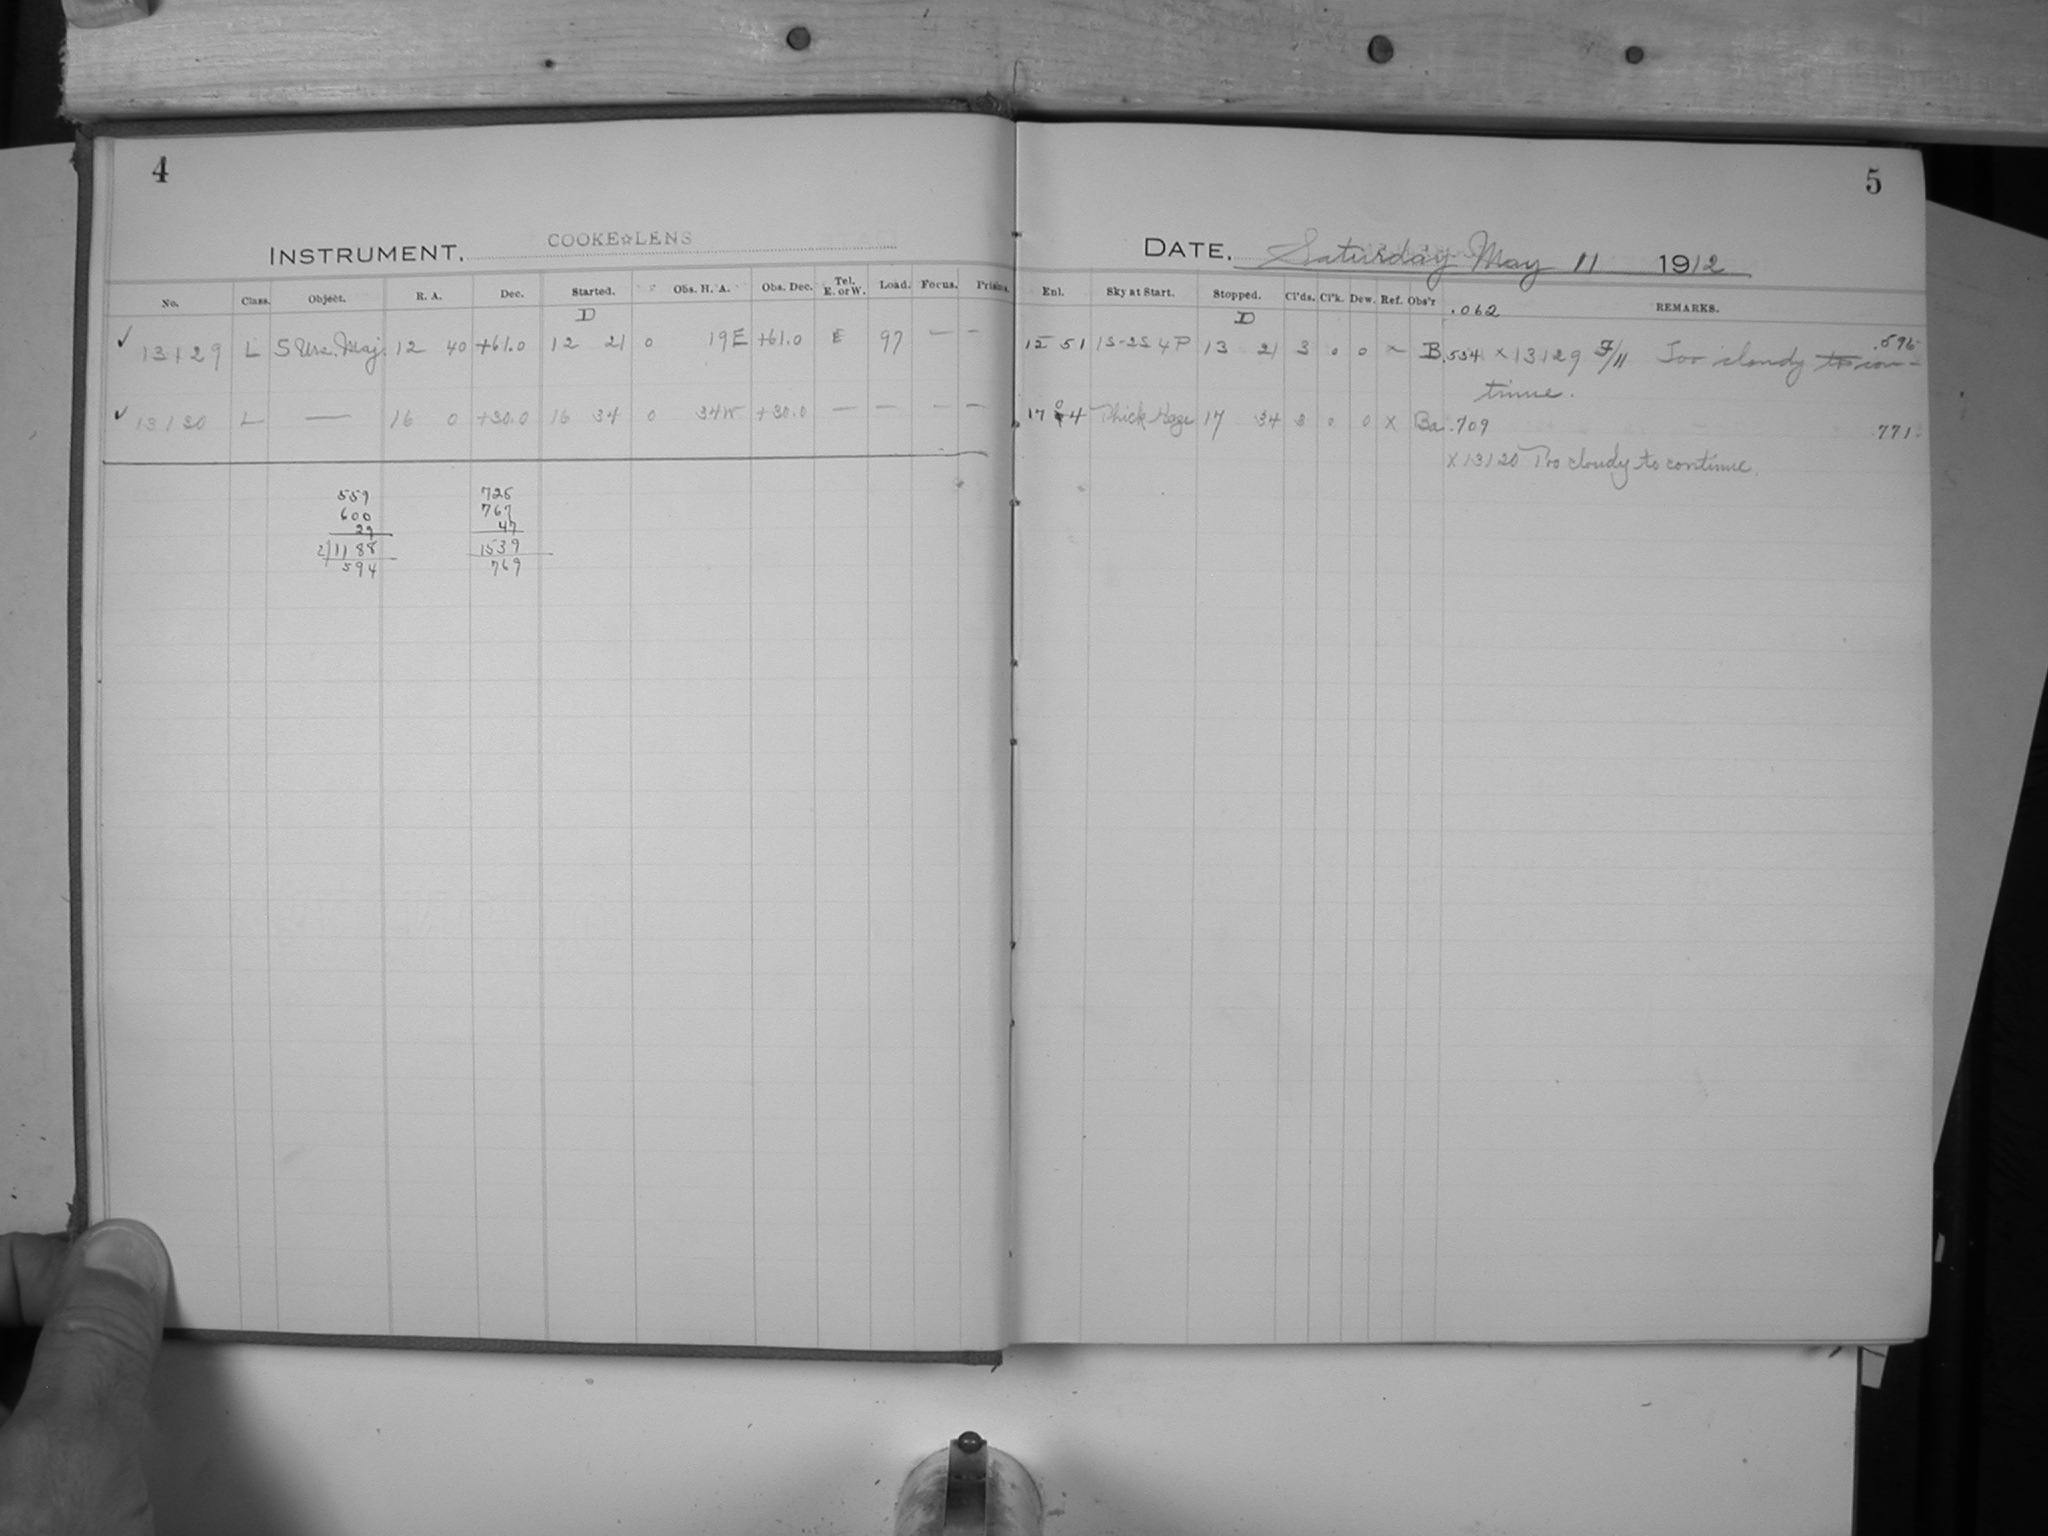 4
INSTRUMENT. COOKE☆LENS
No. Class. Object. R. A. Dec. Started. Obs. H. A. Obs. Dec. Tel. E. or W. Load. Focus. Prisms.
D
✓ 13129 L S Urs. Maj. 12 40 +61.0 12 21 0 19E +61.0 E 97 — —
✓ 13130 L — 16 0 +30.0 16 34 0 34W +30.0 — — — —
559
600
29
2)1188
594
725
767
47
1539
769
5
DATE. Saturday May 11 1912
Enl. Sky at Start. Stopped. Cl'ds. Cl'k. Dew. Ref. Obs'r REMARKS.
D .062
12 51 1S-2S 4P 13 21 3 0 0 × B .534 × 13129 F/11 Too cloudy to con- .596
tinue.
17 04 Thick Haze 17 34 3 0 0 X Ba .709 .771
X 13130 Too cloudy to continue.